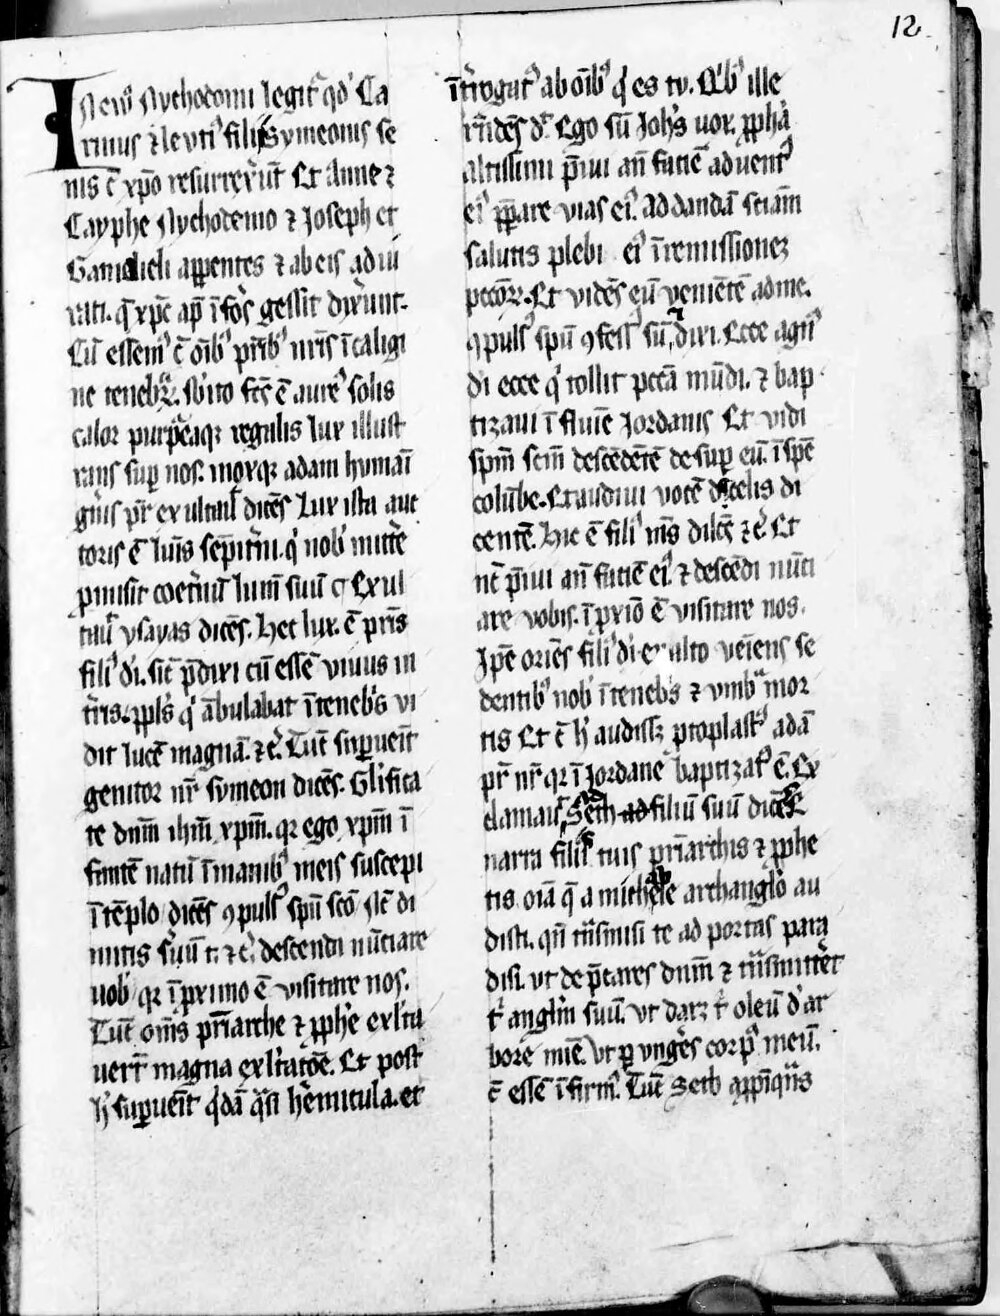 12.
In ew̄ Nychodemi legit̄ qd̛ Ca
rinus ⁊ leuti⁹ filij Symeonis se
nis c̄ xp̄o resurrexer̄t Et Anne ⁊
Cayphe Nychodemo ⁊ Joseph et
Gamalieli apparentes ⁊ ab eis adiu
rati. q̄ xp̄c ap̄ īfōs gessit dixer̄unt.
Cū essem⁹ c̄ oīb⁹ prīb⁹ nr̄is ī caligi
ne tenebr̄. sb̄ito fc̄s ē aure⁹ solis
calor purp̄eaqꝫ regalis lux illust
rans sup̱ nos. moxqꝫ adam humāi
gn̄is pr̄ exultauit dicēs Lux ista auc
toris ē lum̄is sep̄it̄ni. q̛ nob̛ mitte̛
p̱misit coet̄nū lum̄ suū ⁊ Exul
tauit ysayas dicēs. Hec lux. ē pr̄is
fili⁹ di̛. sic̄ p̄dixi cū essē viuus in
tr̄is. pp̱ls̛ q̛ ābulabat ī tenebr̛s vi
dit lucē magnā. ⁊c̛. Tūc sup̱ueīt
genitor nr̄ symeon dicēs. Gl̛ifica
te dn̄m ihm̄ xp̄m. qꝛ ego xp̄m ī
fantē natū ī manib⁹ meis suscepi
ī tēplo dicēs ꝯpuls⁹ spū sc̄o nc̄ di
mittis s̄uū t. ⁊c̛. descendi nūtiare
uob̛ qꝛ ī p̱ximo ē visitare nos.
Tūc om̄s pr̄iarche ⁊ pp̱he exl̛ta
uert̄ magna exl̛tatōe. Et post
h̛ sup̱ueīt q̛dā q̄si h̛emicula. et
īt̄rogat⁹ ab oīb⁹ q̛ es tu. Qib⁹ ille
rn̄dēs d̄r. Ego sū Joh̛s uox. pp̱ha̛
altissimi p̄iui an̄ faciē aduent⁹
ei⁹ pp̱are vias ei⁹. ad dandā sciām
salutis plebi ei⁹ ī remissionez
pcc̄oꝝ. Et vidēs eū veniētē ad me.
ꝯpuls⁹ spū ꝯfess⁹ sū, ⁊ dixi. Ecce agn⁹
di ecce q̛ tollit pcc̄ā mūdi. ⁊ bap
tizaui ī fluīe Jordanis Et vidi
spm̄ scm̄ descēdētē de sup̱ eū. ī spē
colūbe. Et audiui vocē de celis di
centē. Hic ē fili⁹ m̄s dilc̄s ⁊c̛. Et
nc̄ p̄iui an̄ faciē ei⁹ ⁊ descēdi nūti
are vobis. ī p̱xiō ē visitare nos.
Ip̄e oriēs fili⁹ di̛ ex alto veīens se
dentib⁹ nob̛ ī tenebr̛s ⁊ vmbra mor
tis Et c̄ h̛ audissꝫ proplast⁹ adā
pr̄ nr̄ qꝛ ī Jordane baptizat⁹ ē. Ex
clamauit ad Seth filiū suū dicēs
narra filijs tuis pr̄iarchis ⁊ pp̱he
tis oīa q̄ a michaele archanglơ au
disti. qn̄ tn̄smisi te ad portas para
disi. ut dep̄cares dnm̄ ⁊ tn̄smitter̛et
t̛ anglm̄ suū. vt darꝫ t̛ oleū d̛ ar
bore mīe. vt p̱ vnger̛es corp⁹ meū.
c̄ essē ī firm⁹. Tūc Seth app̱īquās